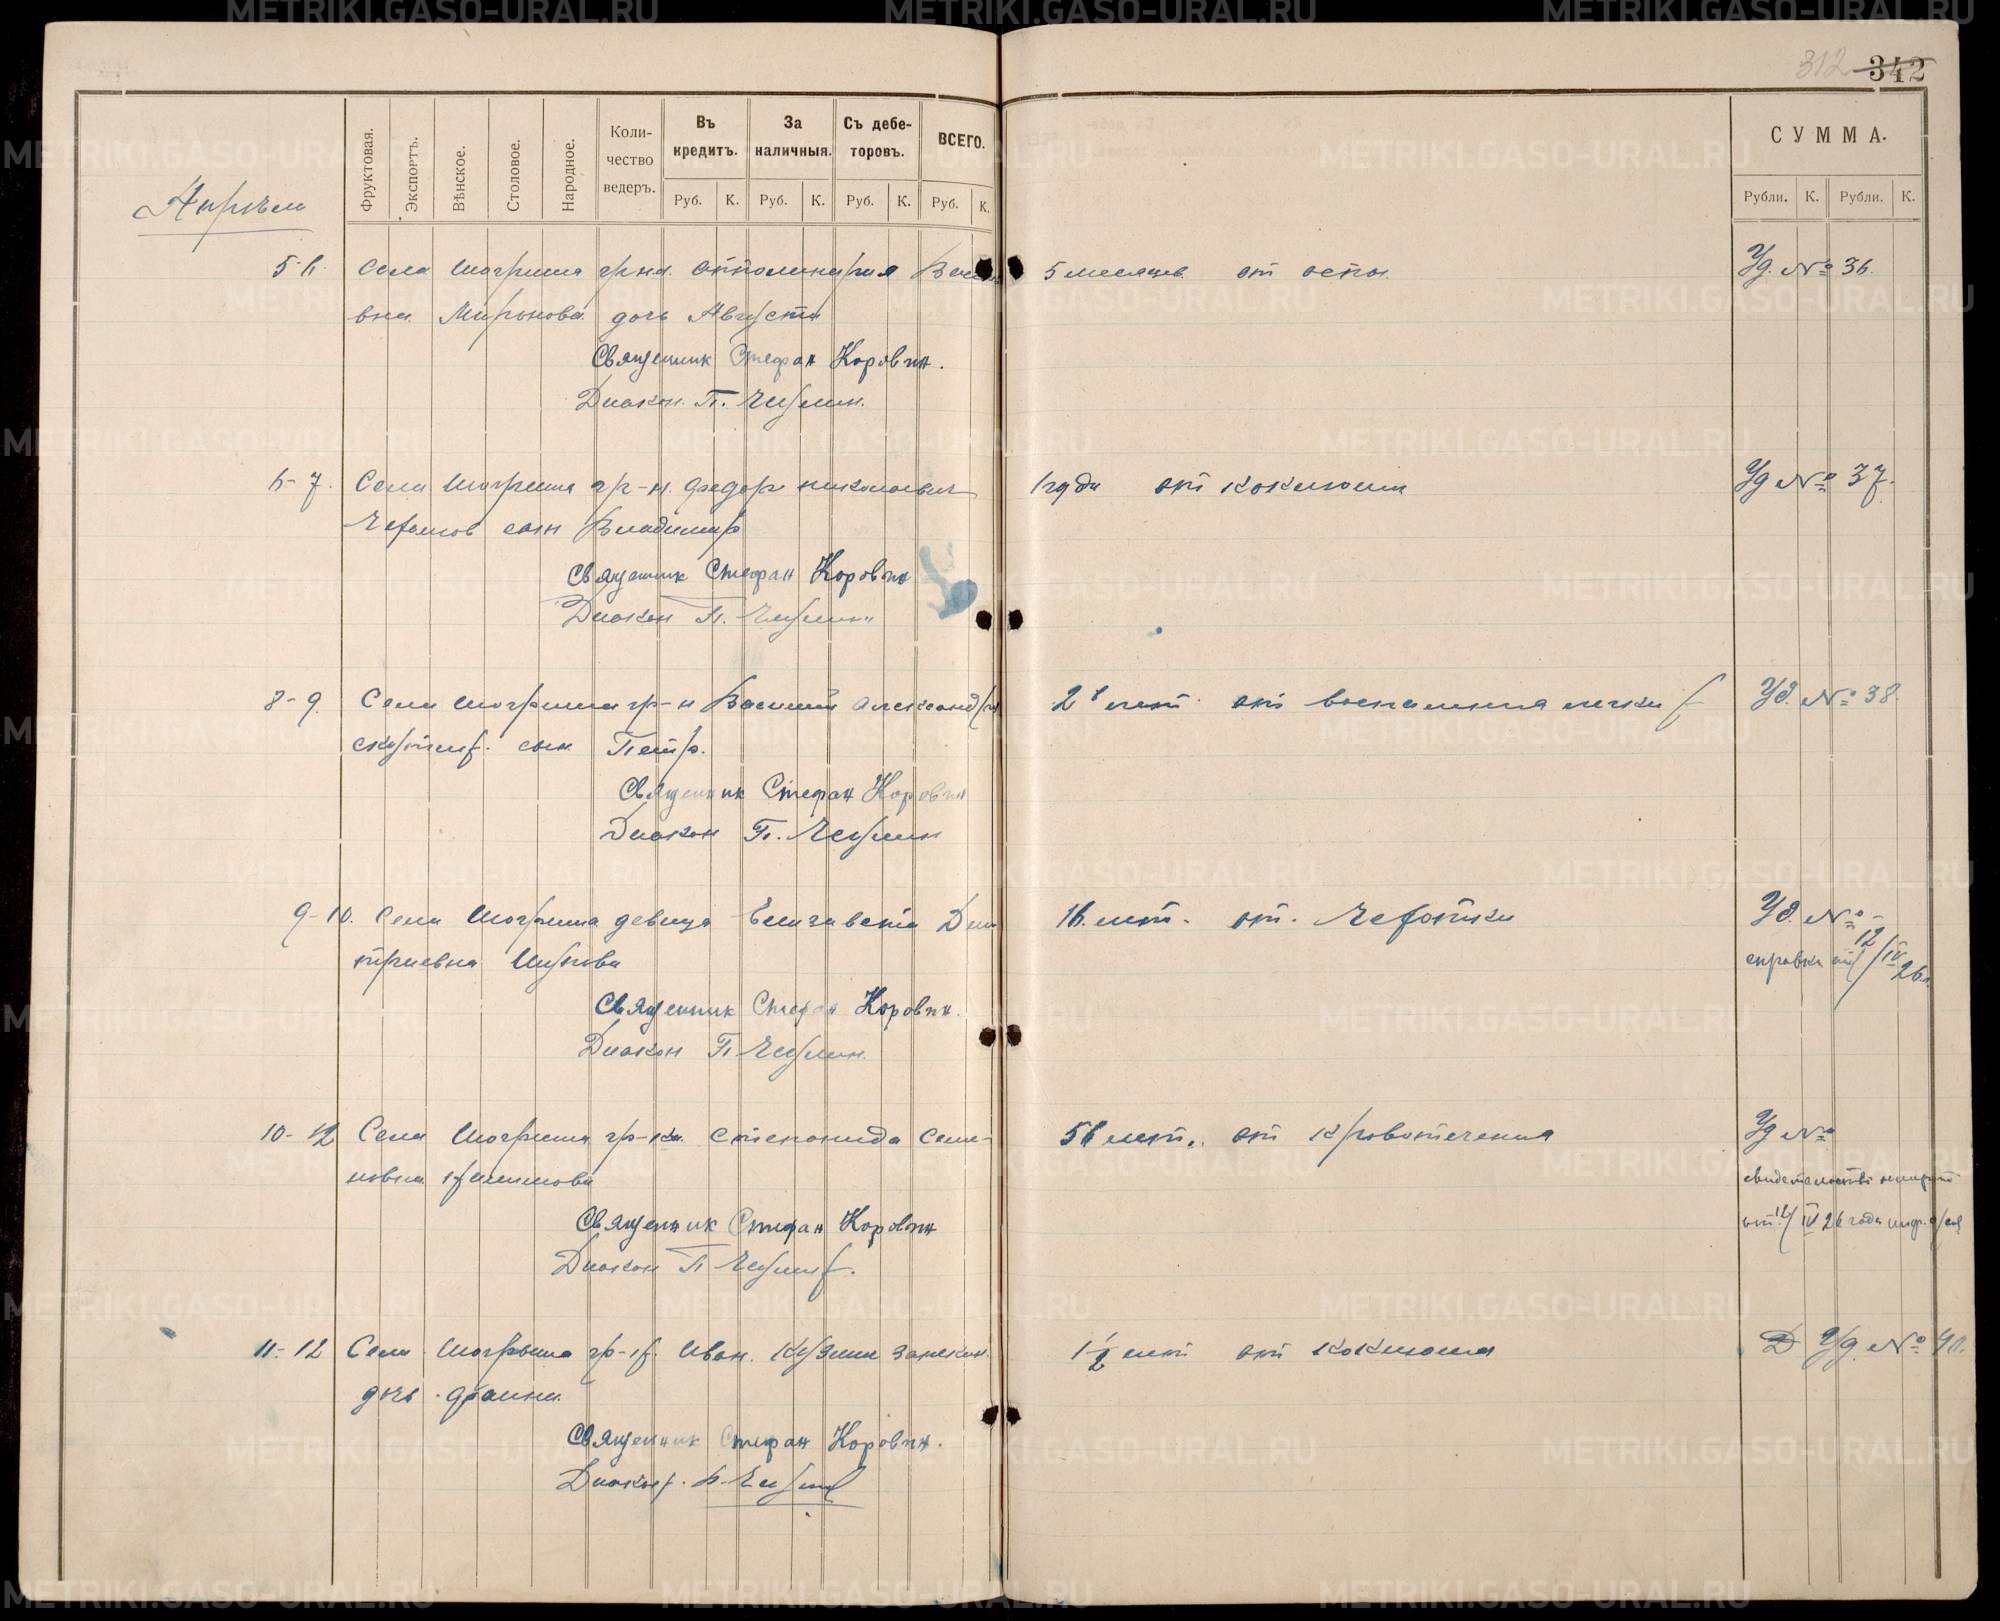 312 342
Фруктовая. Экспортъ. Вѣнское. Столовое. Народное. Количество ведеръ. Въ кредитъ. За наличныя. Съ дебеторовъ. ВСЕГО. СУММА.
Руб. К. Руб. К. Руб. К. Руб. К. Рубли. К. Рубли. К.
Апрель
5-6. Села Шогриша гр-на Апполинария 5 месяцев от оспы. Уд. № 36.
вна Миронова дочь Августа
Священник Стефан Коровин.
Диакон П.
6-7. Села Шогриша гр-н. Федор Николаевич 1 года от коклюша Уд № 37.
сын Владимир
Священник Стефан Коровин
Диакон П.
8-9. Села Шогриша гр-н Василий Александр 2 лет от воспаления легких Уд. № 38.
сын Петр.
Священник Стефан Коровин
Диакон П.
9-10. Села Шогриша девица Елизавета Дми 16 лет. от. чахотки Уд. №
триевна справка от 12/IV 26 г.
Священник Стефан Коровин.
Диакон П.
10-12 Села Шогриша гр-ка Степанида Семе- 56 лет. от кровотечения Уд №
новна
от 12/IV 26 года
Священник Стефан Коровин
Диакон П
11-12 Села Шогриша гр-н. Иван 1 1/2 лет от коклюша Уд. № 40.
дочь Фаина.
Священник Стефан Коровин.
Диакон. П.